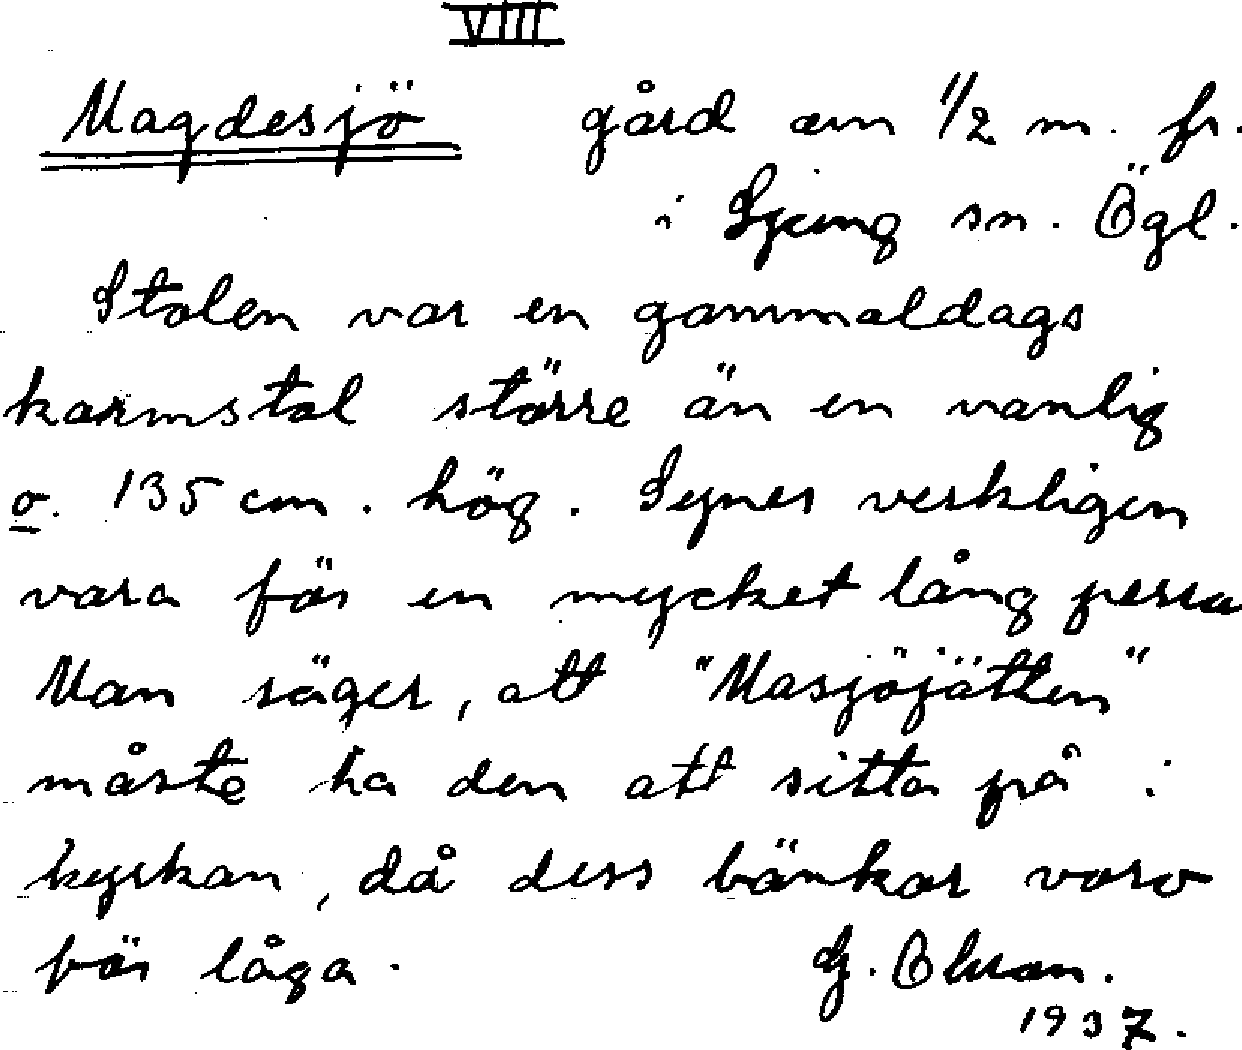 VIII
Magdesjö gård om 1/2 m. fr.
i Ljung sn. Ögl.
Stolen var en gammaldags
karmstol större än en vanlig
o. 135 cm. hög. Synes verkligen
vara för en mycket lång perso
Man säger, att "Masjöjätten"
måste ha den att sitta på i
kyrkan, då dess bänkar voro
för låga.
G. Olsson.
1937.